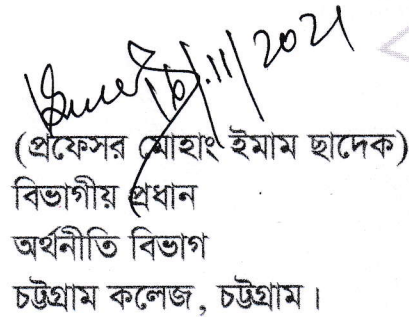 16/11/2021
(প্রফেসর মোহাং ইমাম ছাদেক)
বিভাগীয় প্রধান
অর্থনীতি বিভাগ
চট্টগ্রাম কলেজ, চট্টগ্রাম।